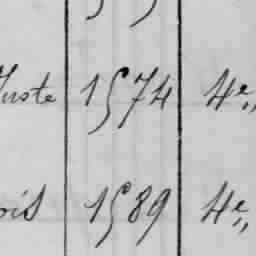 Juste 1574 4e„
ois 1589 4e„